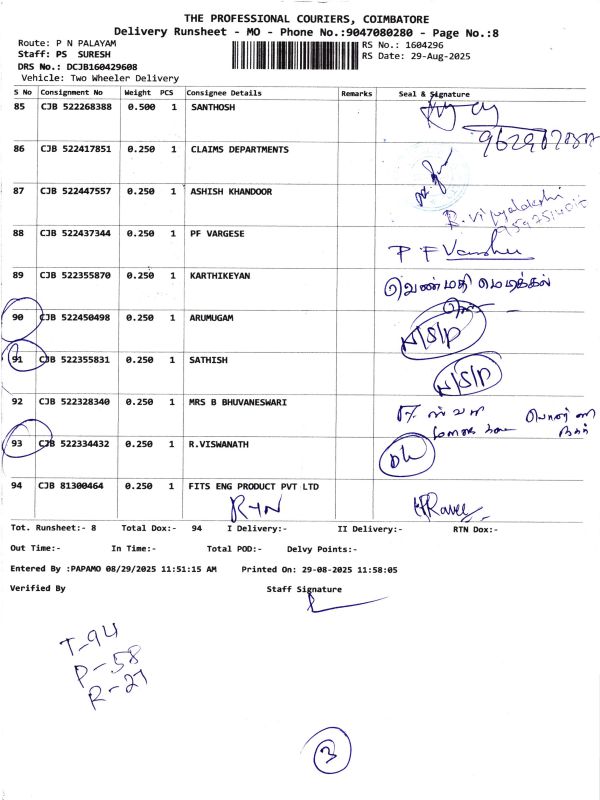 THE PROFESSIONAL COURIERS, COIMBATORE
Delivery Runsheet - MO - Phone No.:9047080280 - Page No.:8
Route: P N PALAYAM RS No.: 1604296
Staff: PS SURESH RS Date: 29-Aug-2025
DRS No.: DCJB160429608
Vehicle: Two Wheeler Delivery
S No Consignment No Weight PCS Consignee Details Remarks Seal & Signature
85 CJB 522268388 0.500 1 SANTHOSH
86 CJB 522417851 0.250 1 CLAIMS DEPARTMENTS
87 CJB 522447557 0.250 1 ASHISH KHANDOOR
R. Vijayalakshi
88 CJB 522437344 0.250 1 PF VARGESE
P F
89 CJB 522355870 0.250 1 KARTHIKEYAN
வெண்மதி மெடிக்கல்
90 CJB 522450498 0.250 1 ARUMUGAM
N/S/P
91 CJB 522355831 0.250 1 SATHISH
N/S/P
92 CJB 522328340 0.250 1 MRS B BHUVANESWARI
93 CJB 522334432 0.250 1 R.VISWANATH
DL
94 CJB 81300464 0.250 1 FITS ENG PRODUCT PVT LTD
Tot. Runsheet:- 8 Total Dox:- 94 I Delivery:- II Delivery:- RTN Dox:-
Out Time:- In Time:- Total POD:- Delvy Points:-
Entered By :PAPAMO 08/29/2025 11:51:15 AM Printed On: 29-08-2025 11:58:05
Verified By Staff Signature
T-94
P-58
R-27
3